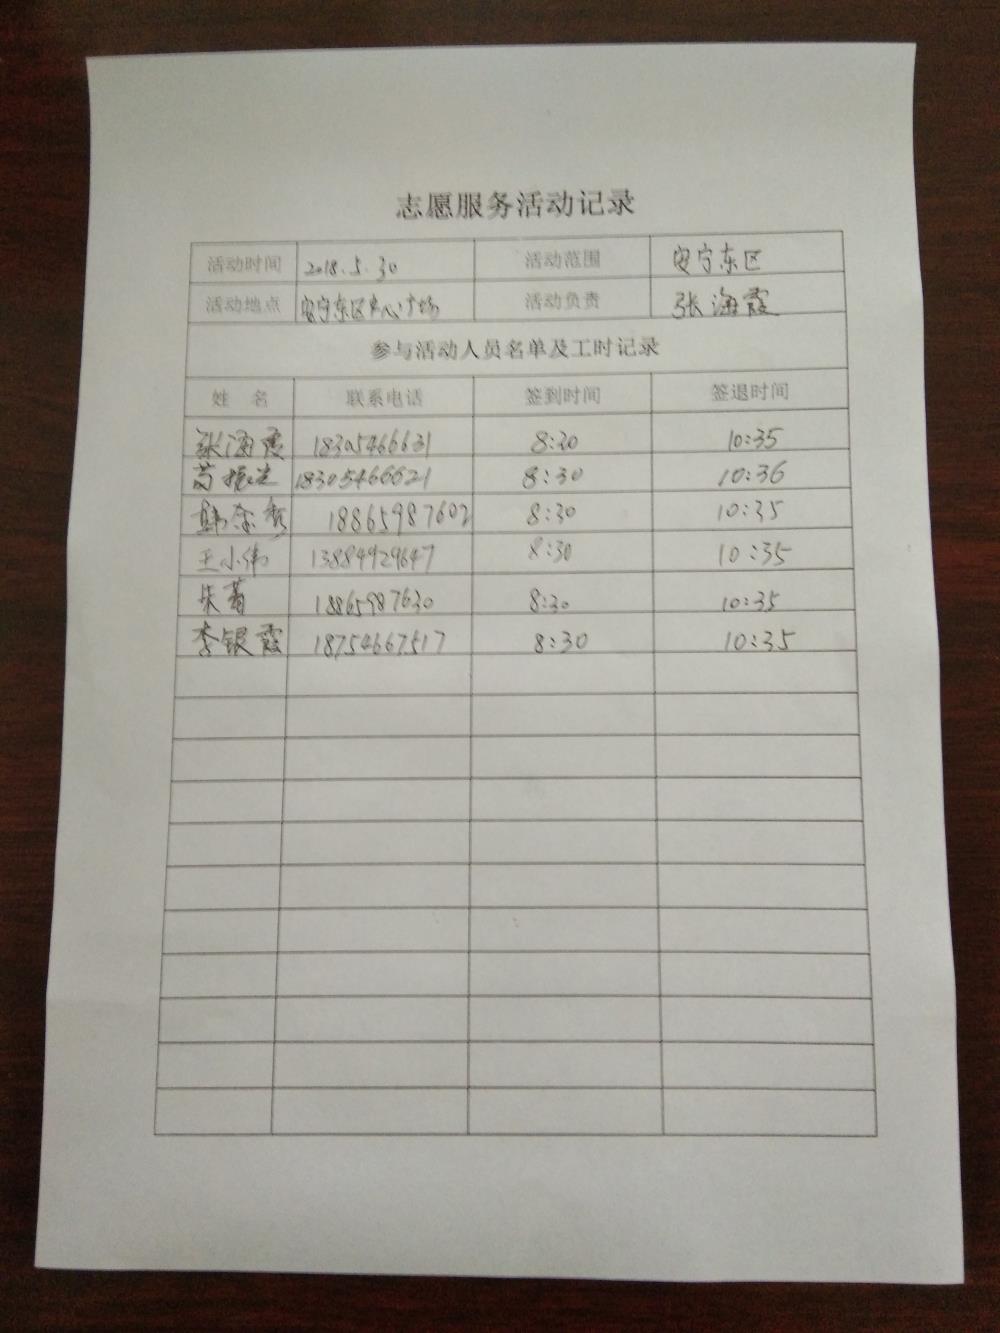 志愿服务活动记录
活动时间 2018.5.30 活动范围 安宁东区
活动地点 安宁东区中心广场 活动负责 张海霞
参与活动人员名单及工时记录
姓 名 联系电话 签到时间 签退时间
张海霞 18305466631 8:30 10:35
18305466621 8:30 10:36
韩 18865987602 8:30 10:35
王小伟 13884929647 8:30 10:35
朱 18865987630 8:30 10:35
李银霞 18754667517 8:30 10:35